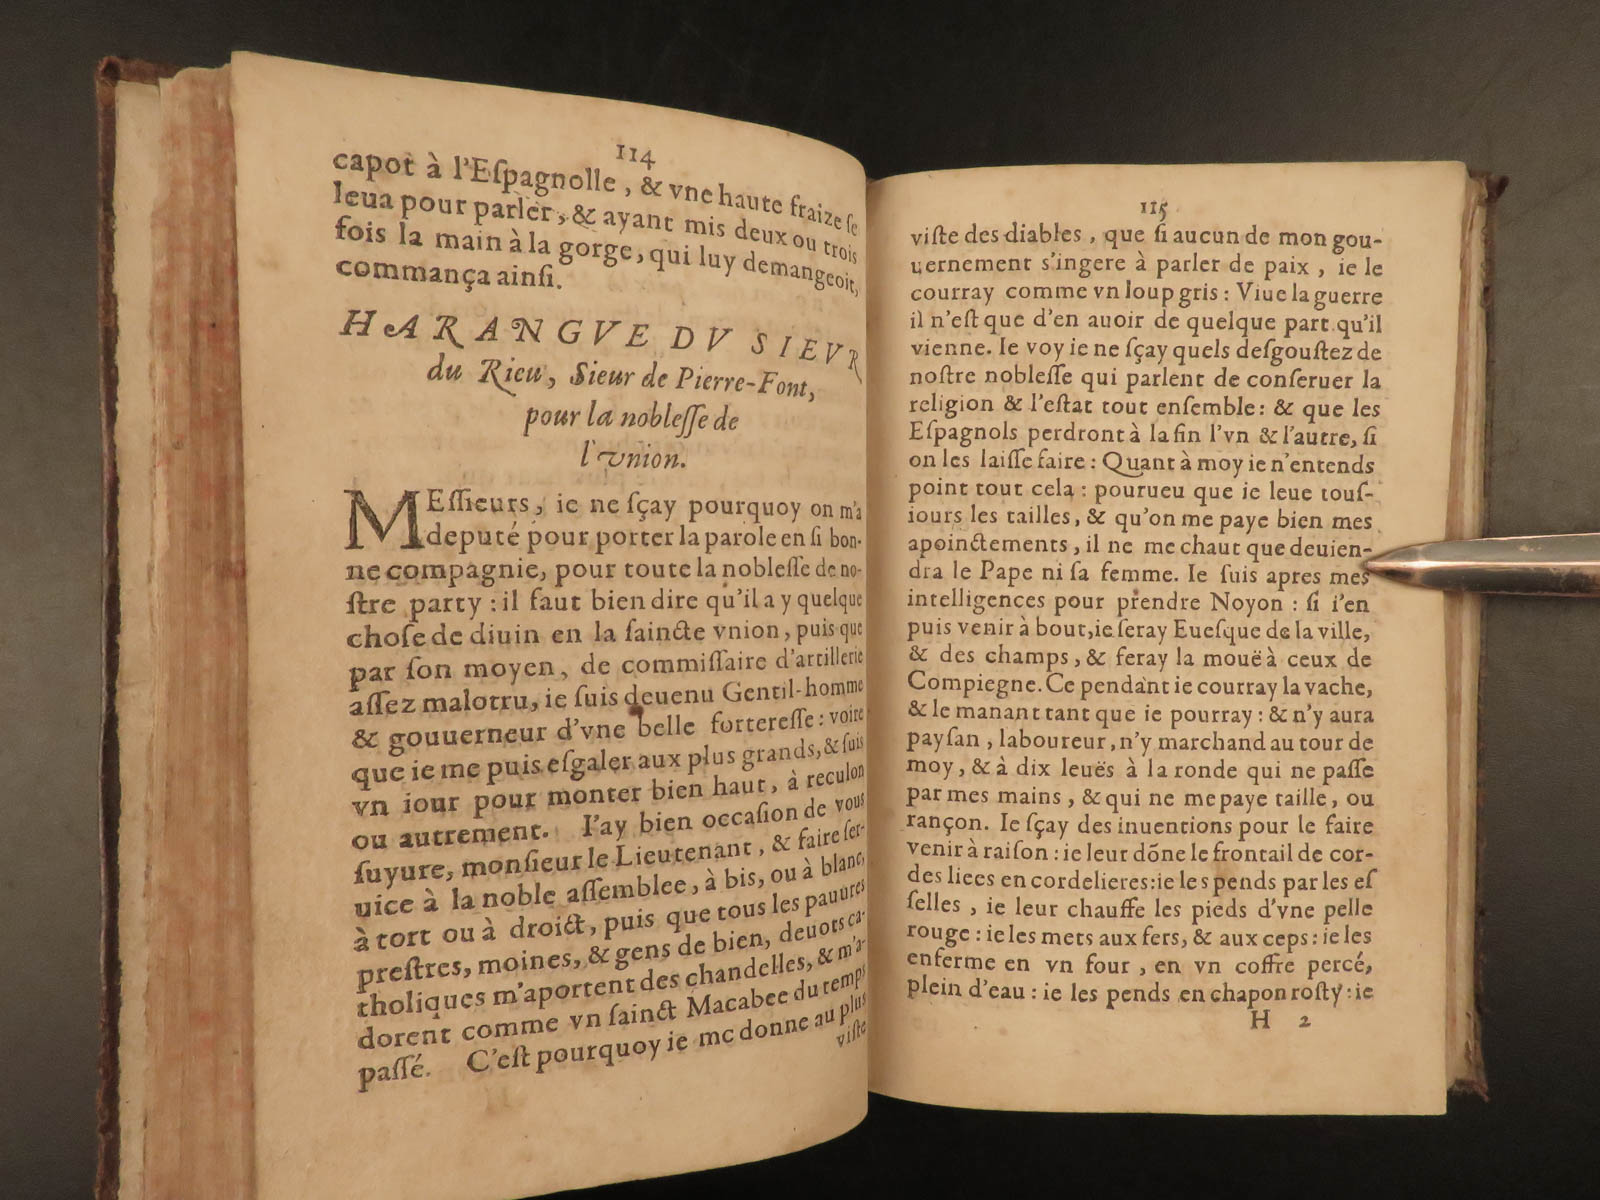 114
capot à l'Eſpagnolle, & vne haute fraize ſe
leua pour parler, & ayant mis deux ou trois
fois la main à la gorge, qui luy demangeoit,
commança ainſi.
HARANGVE DV SIEVR
du Rieu, Sieur de Pierre-Font,
pour la nobleſſe de
l'vnion.
MEſſieurs, ie ne ſçay pourquoy on m'a
deputé pour porter la parole en ſi bon-
ne compagnie, pour toute la nobleſſe de no-
ſtre party : il faut bien dire qu'il a y quelque
choſe de diuin en la ſaincte vnion, puis que
par ſon moyen, de commiſſaire d'artillerie
aſſez malotru, ie ſuis deuenu Gentil-homme
& gouuerneur d'vne belle fortereſſe : voire
que ie me puis eſgaler aux plus grands, & ſuis
vn iour pour monter bien haut, à reculon
ou autrement. I'ay bien occaſion de vous
ſuyure, monſieur le Lieutenant, & faire ſer-
uice à la noble aſſemblee, à bis, ou à blanc,
à tort ou à droict, puis que tous les pauures
preſtres, moines, & gens de bien, deuots ca-
tholiques m'aportent des chandelles, & m'a-
dorent comme vn ſainct Macabee du temps
paſſé. C'eſt pourquoy ie me donne au plus
viſte
115
viſte des diables, que ſi aucun de mon gou-
uernement s'ingere à parler de paix, ie le
courray comme vn loup gris : Viue la guerre
il n'eſt que d'en auoir de quelque part qu'il
vienne. Ie voy ie ne ſçay quels deſgouſtez de
noſtre nobleſſe qui parlent de conſeruer la
religion & l'eſtat tout enſemble : & que les
Eſpagnols perdront à la fin l'vn & l'autre, ſi
on les laiſſe faire : Quant à moy ie n'entends
point tout cela : pourueu que ie leue touſ-
iours les tailles, & qu'on me paye bien mes
apoinctements, il ne me chaut que deuien-
dra le Pape ni ſa femme. Ie ſuis apres mes
intelligences pour prendre Noyon : ſi i'en
puis venir à bout, ie ſeray Eueſque de la ville,
& des champs, & feray la mouë à ceux de
Compiegne. Ce pendant ie courray la vache,
& le manant tant que ie pourray : & n'y aura
payſan, laboureur, n'y marchand au tour de
moy, & à dix leuës à la ronde qui ne paſſe
par mes mains, & qui ne me paye taille, ou
rançon. Ie ſçay des inuentions pour le faire
venir à raiſon : ie leur dõne le frontail de cor-
des liees en cordelieres : ie les pends par les eſ
ſelles, ie leur chauffe les pieds d'vne pelle
rouge : ie les mets aux fers, & aux ceps : ie les
enferme en vn four, en vn coffre percé,
plein d'eau : ie les pends en chapon roſty : ie
H 2